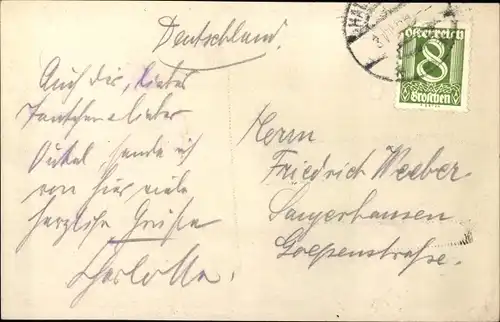 Deutschland.
Auch dir, liebes
Tantchen u lieber
Onkel sende ich
von hier viele
herzliche Grüße
Charlotte.
Österreich
8
Groschen
Herrn
Friedrich Weeber
Sangerhausen
Goepenstraße.